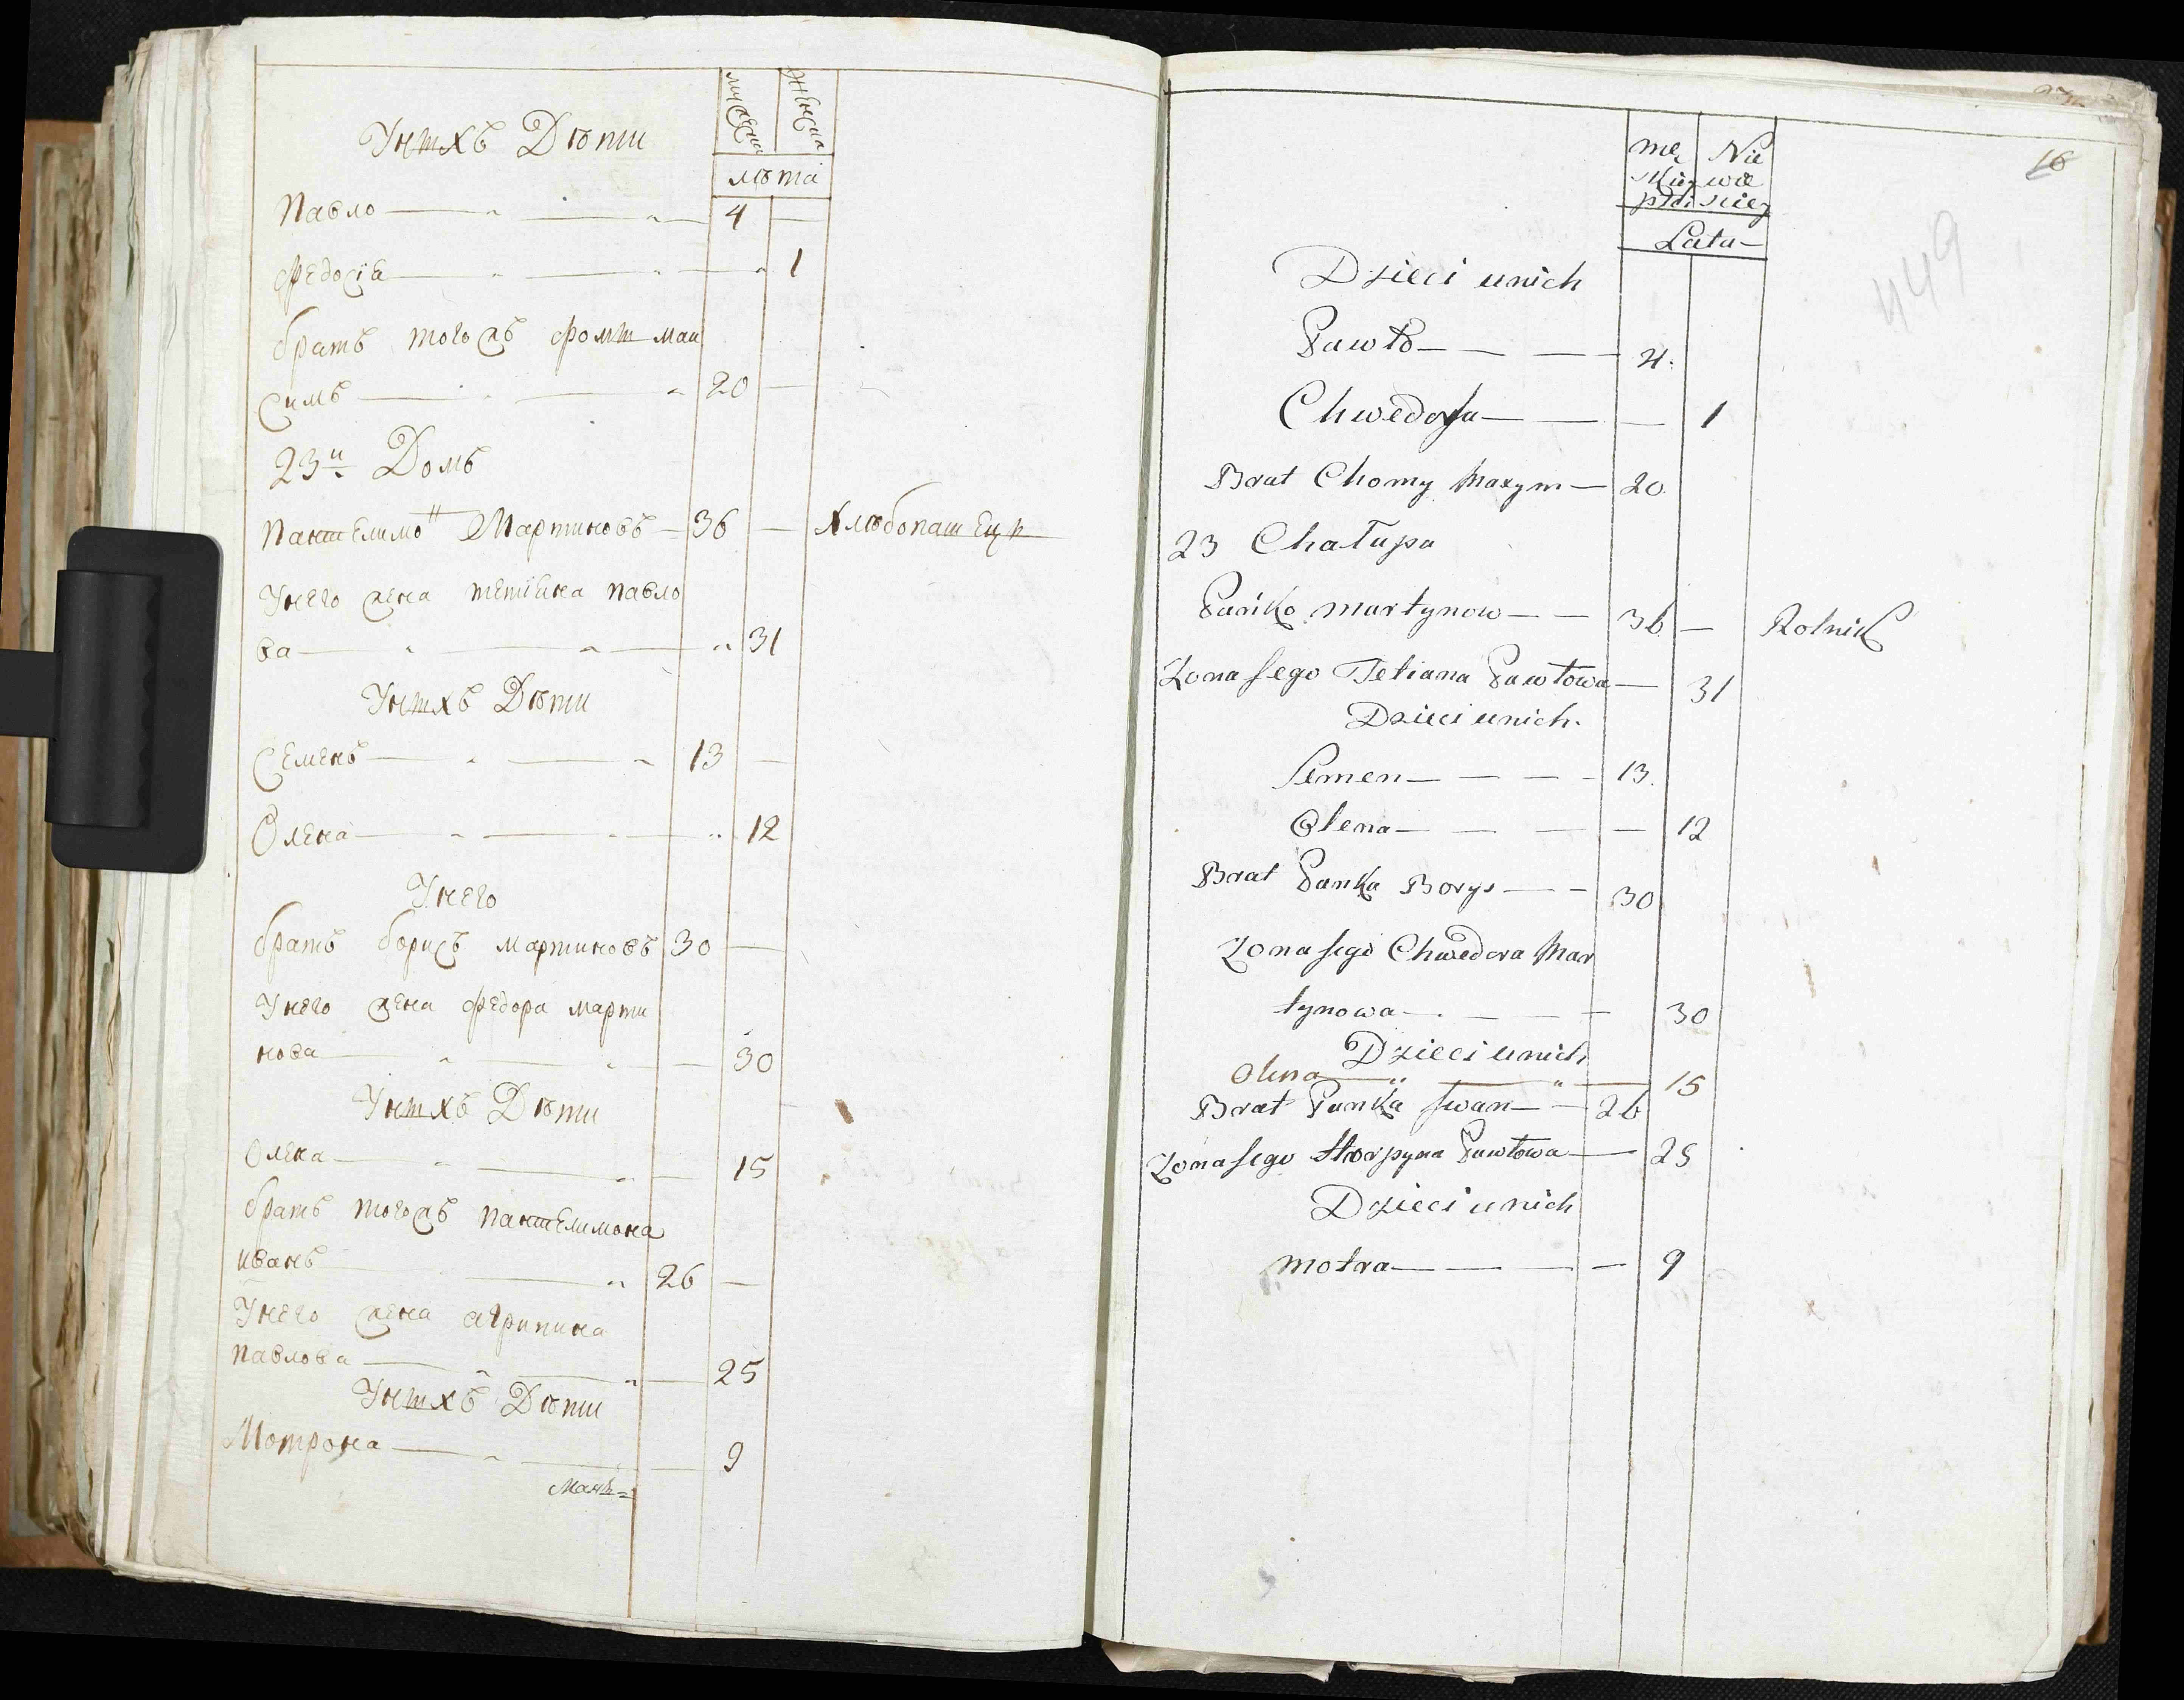 мужеска женска
Унихъ Дѣти
лѣта
Павло 4
Федосіа 1
братъ тогожъ фоми мак
симъ 20
23й Домъ
Пантелимон Мартиновъ 36 Хлѣбопашецъ
Унего жена тетіана павло
ва 31
Унихъ Дѣти
Семенъ 13
Олена 12
Унего
братъ борисъ мартиновъ 30
Унего жена федора марти
нова 30
Унихъ Дѣти
Олена 15
братъ тогожъ пантелимона
иванъ 26
Унего жена агрипина
павлова 25
Унихъ Дѣти
Мотрона 9
16
449
mę Nie
skiey wie
płci sciey
Lata
Dzieci unich
Pawło 4.
Chwedosia 1
Brat Chomy Maxym 20
23 Chałupa
Pańko martynow 36 Rolnik
Zona Jego Tetiana Pawłowa 31
Dzieci unich.
Semen 13.
Olena 12
Brat Panka Borys 30
Zona Jego Chwedora Mar
tynowa 30
Dzieci unich
Olena 15
Brat Panka Iwan 26
Zona Jego Horpyna Pawłowa 25
Dzieci unich
motra 9